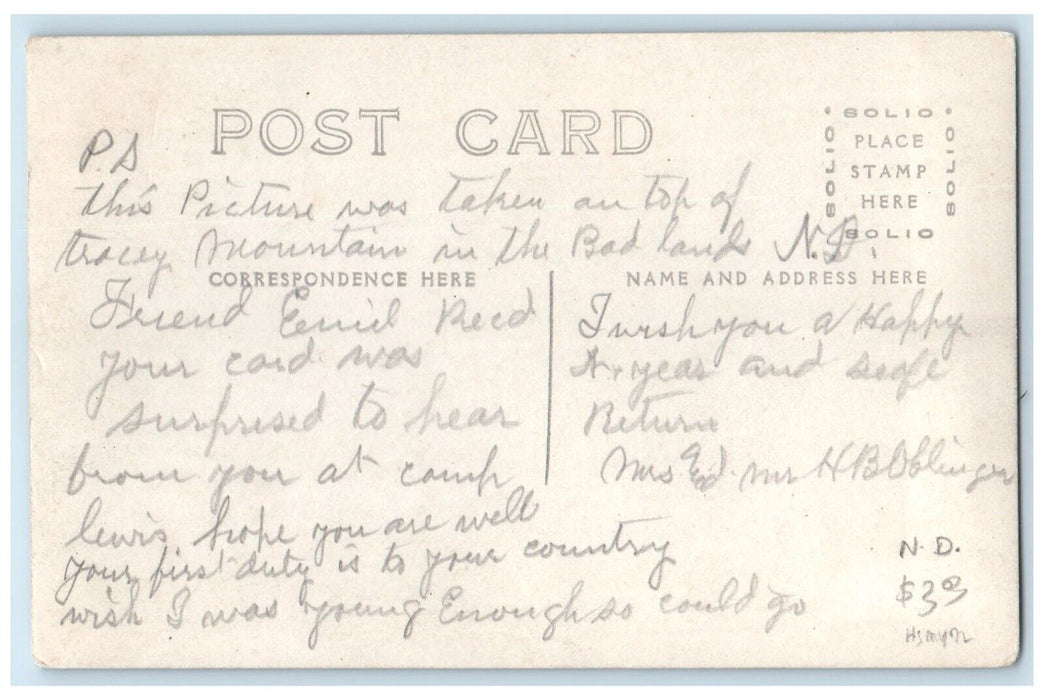 POST CARD
SOLIO
SOLIO PLACE SOLIO
STAMP
HERE
SOLIO
P.S
this Picture was taken on top of
tracey Mountain in the Bad lands N.D.
CORRESPONDENCE HERE
NAME AND ADDRESS HERE
Friend Enid Reed
your card was
surprised to hear
from you at camp
lewis hope you are well
your first duty is to your country
wish I was young Enough so could go
I wish you a Happy
year and safe
Return
Mrs Ed Mr H B Oblinger
N.D.
$3